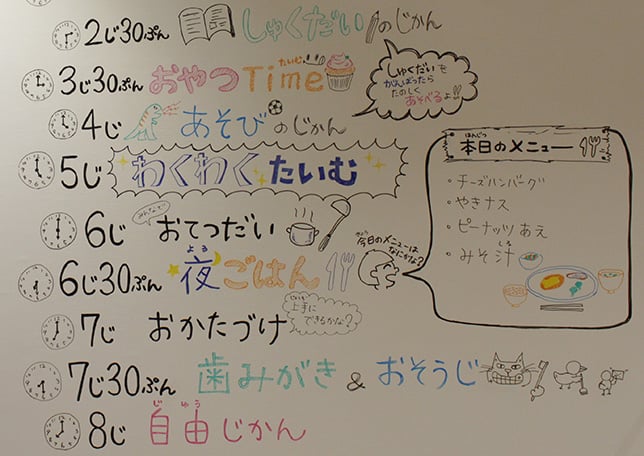 2じ30ぷん しゅくだいのじかん
3じ30ぷん おやつTime
たいむ
しゅくだいを
がんばったら
たのしく
あそべるよ!!
4じ あそびのじかん
5じ わくわくたいむ
6じ みんなで おてつだい
今日のメニューは
きょう
なにかな?
6じ30ぷん 夜ごはん
よる
7じ おかたづけ
上手に
じょうず
できるかな?
7じ30ぷん 歯みがき & おそうじ
は
8じ 自由じかん
じゆう
本日のメニュー
ほんじつ
・チーズハンバーグ
・やきナス
・ピーナッツあえ
・みそ汁
しる